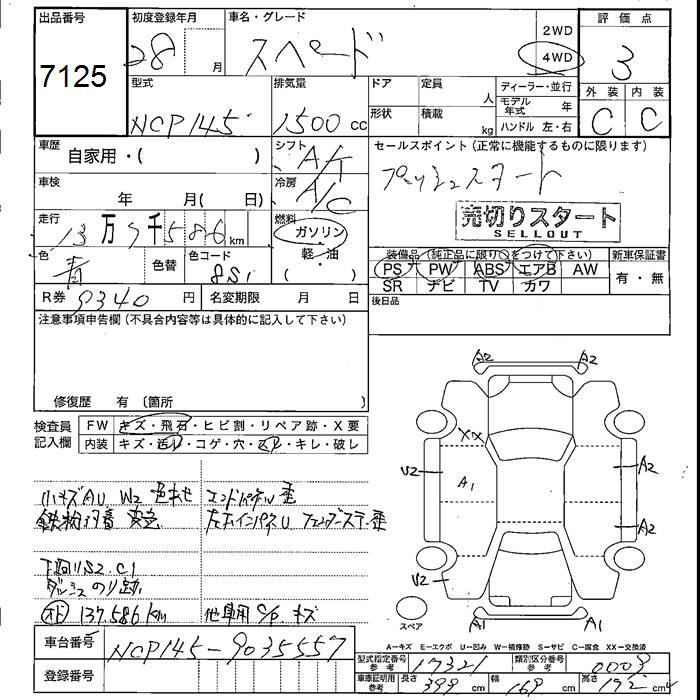 出品番号 初度登録年月 車名・グレード 2WD 評価点
7125 28 月 スペード 4WD 3
型式 排気量 ドア 定員 人 ディーラー・並行 外装 内装
NCP145 1500 cc 形状 積載 kg モデル年式 年 C C
ハンドル 左・右
車歴 自家用・( ) シフト A/T セールスポイント(正常に機能するものに限ります)
車検 年 月( 日) 冷房 A/C プッシュスタート
売切りスタート
SELLOUT
走行 13万7千586km 燃料 ガソリン
軽・油
色 青 色替 色コード 8S1 装備品(純正品に限り○をつけて下さい) 新車保証書
PS PW ABS エアB AW 有・無
SR ナビ TV カワ
R券 9340 円 名変期限 月 日 後日品
注意事項申告欄(不具合内容等は具体的に記入して下さい)
修復歴 有(箇所 )
A2 A2
検査員 FW キズ・飛石・ヒビ割・リペア跡・X要
記入欄 内装 キズ・汚レ・コゲ・穴・スレ・キレ・破レ
XX
U2 A1 A2
小キズAU W2 色あせ エンドパネル歪
A2
下回りS2.C1
U2
137.586km キズ
スペア A1 A1
A=キズ E=エクボ U=凹み W=補修跡 S=サビ C=腐食 XX=交換済
車台番号 NCP145-9035557
型式指定番号 参考 17321 類別区分番号 参考 0003
登録番号 車庫証明用 参考 長さ 399 cm 幅 169 cm 高さ cm